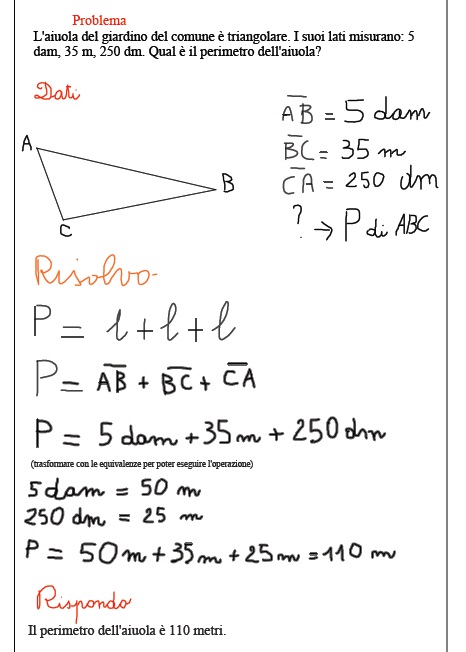 Problema
L'aiuola del giardino del comune è triangolare. I suoi lati misurano: 5
dam, 35 m, 250 dm. Qual è il perimetro dell'aiuola?
Dati
A
B
C
AB = 5 dam
BC = 35 m
CA = 250 dm
? → P di ABC
Risolvo-
P = l + l + l
P = AB + BC + CA
P = 5 dam + 35 m + 250 dm
(trasformare con le equivalenze per poter eseguire l'operazione)
5 dam = 50 m
250 dm = 25 m
P = 50 m + 35 m + 25 m = 110 m
Rispondo
Il perimetro dell'aiuola è 110 metri.